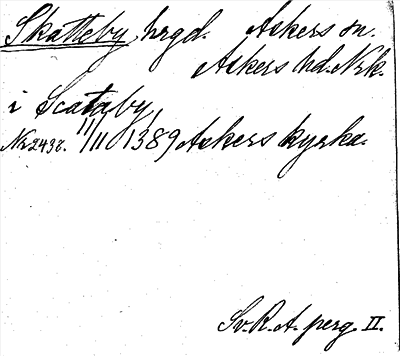 Skatteby, hrgd. Askers sn.
Askers hd. Nrk.
i Scataby,
Nr2438. 11/11 1389 Askers kyrka.
Sv. R. A. perg. II.